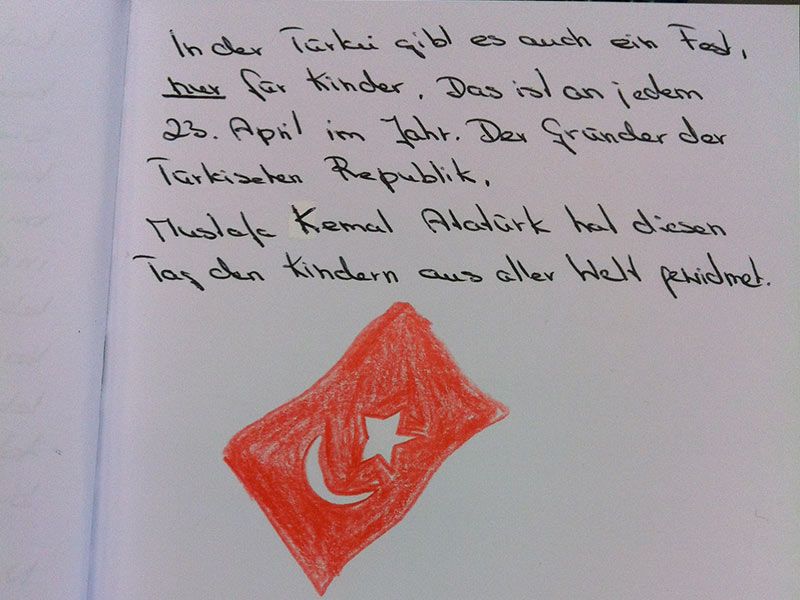 In der Türkei gibt es auch ein Fest,
nur für Kinder. Das ist an jedem
23. April im Jahr. Der Gründer der
Türkischen Republik,
Mustafa Kemal Atatürk hat diesen
Tag den Kindern aus aller Welt gewidmet.